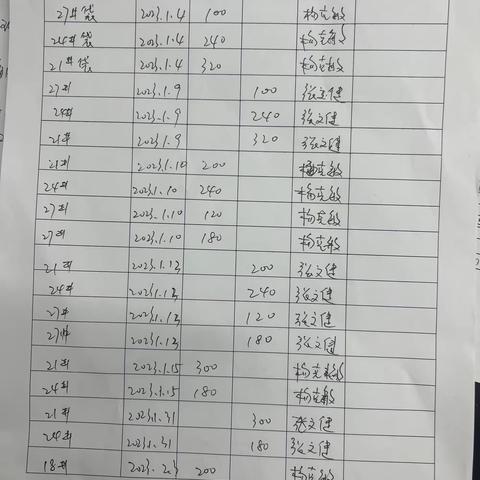 27#袋 2023.1.4 100 杨克敏
24#袋 2023.1.4 240 杨克敏
21#袋 2023.1.4 320 杨克敏
27# 2023.1.9 100 张文健
24# 2023.1.9 240 张文健
21# 2023.1.9 320 张文健
21# 2023.1.10 200 杨克敏
24# 2023.1.10 240 杨克敏
27# 2023.1.10 120 杨克敏
27# 2023.1.10 180 杨克敏
21# 2023.1.13 200 张文健
24# 2023.1.13 240 张文健
27# 2023.1.13 120 张文健
27# 2023.1.13 180 张文健
21# 2023.1.15 300 杨克敏
24# 2023.1.15 180 杨克敏
21# 2023.1.31 300 张文健
24# 2023.1.31 180 张文健
18# 2023.2.3 200 杨克敏